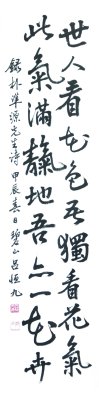 世人看花色吾獨看花氣
此氣滿靝地吾亦一花卉
錄朴準源先生詩 甲辰春日 碧山 呂恒九